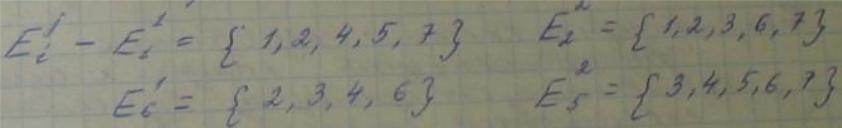 E_i^j - E_1^1 = { 1, 2, 4, 5, 7 } E_2^2 = { 1, 2, 3, 6, 7 }
E_6^1 = { 2, 3, 4, 6 } E_5^2 = { 3, 4, 5, 6, 7 }